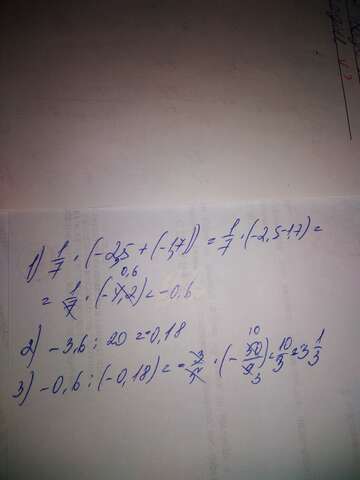 1) 1/7 · (-2,5 + (-1,7)) = 1/7 · (-2,5-1,7) =
0,6
= 1/7 · (-4,2) = -0,6
2) -3,6 : 20 = -0,18
10
3) -0,6 : (-0,18) = -3/5 · (-50/9) = 10/3 = 3 1/3
3